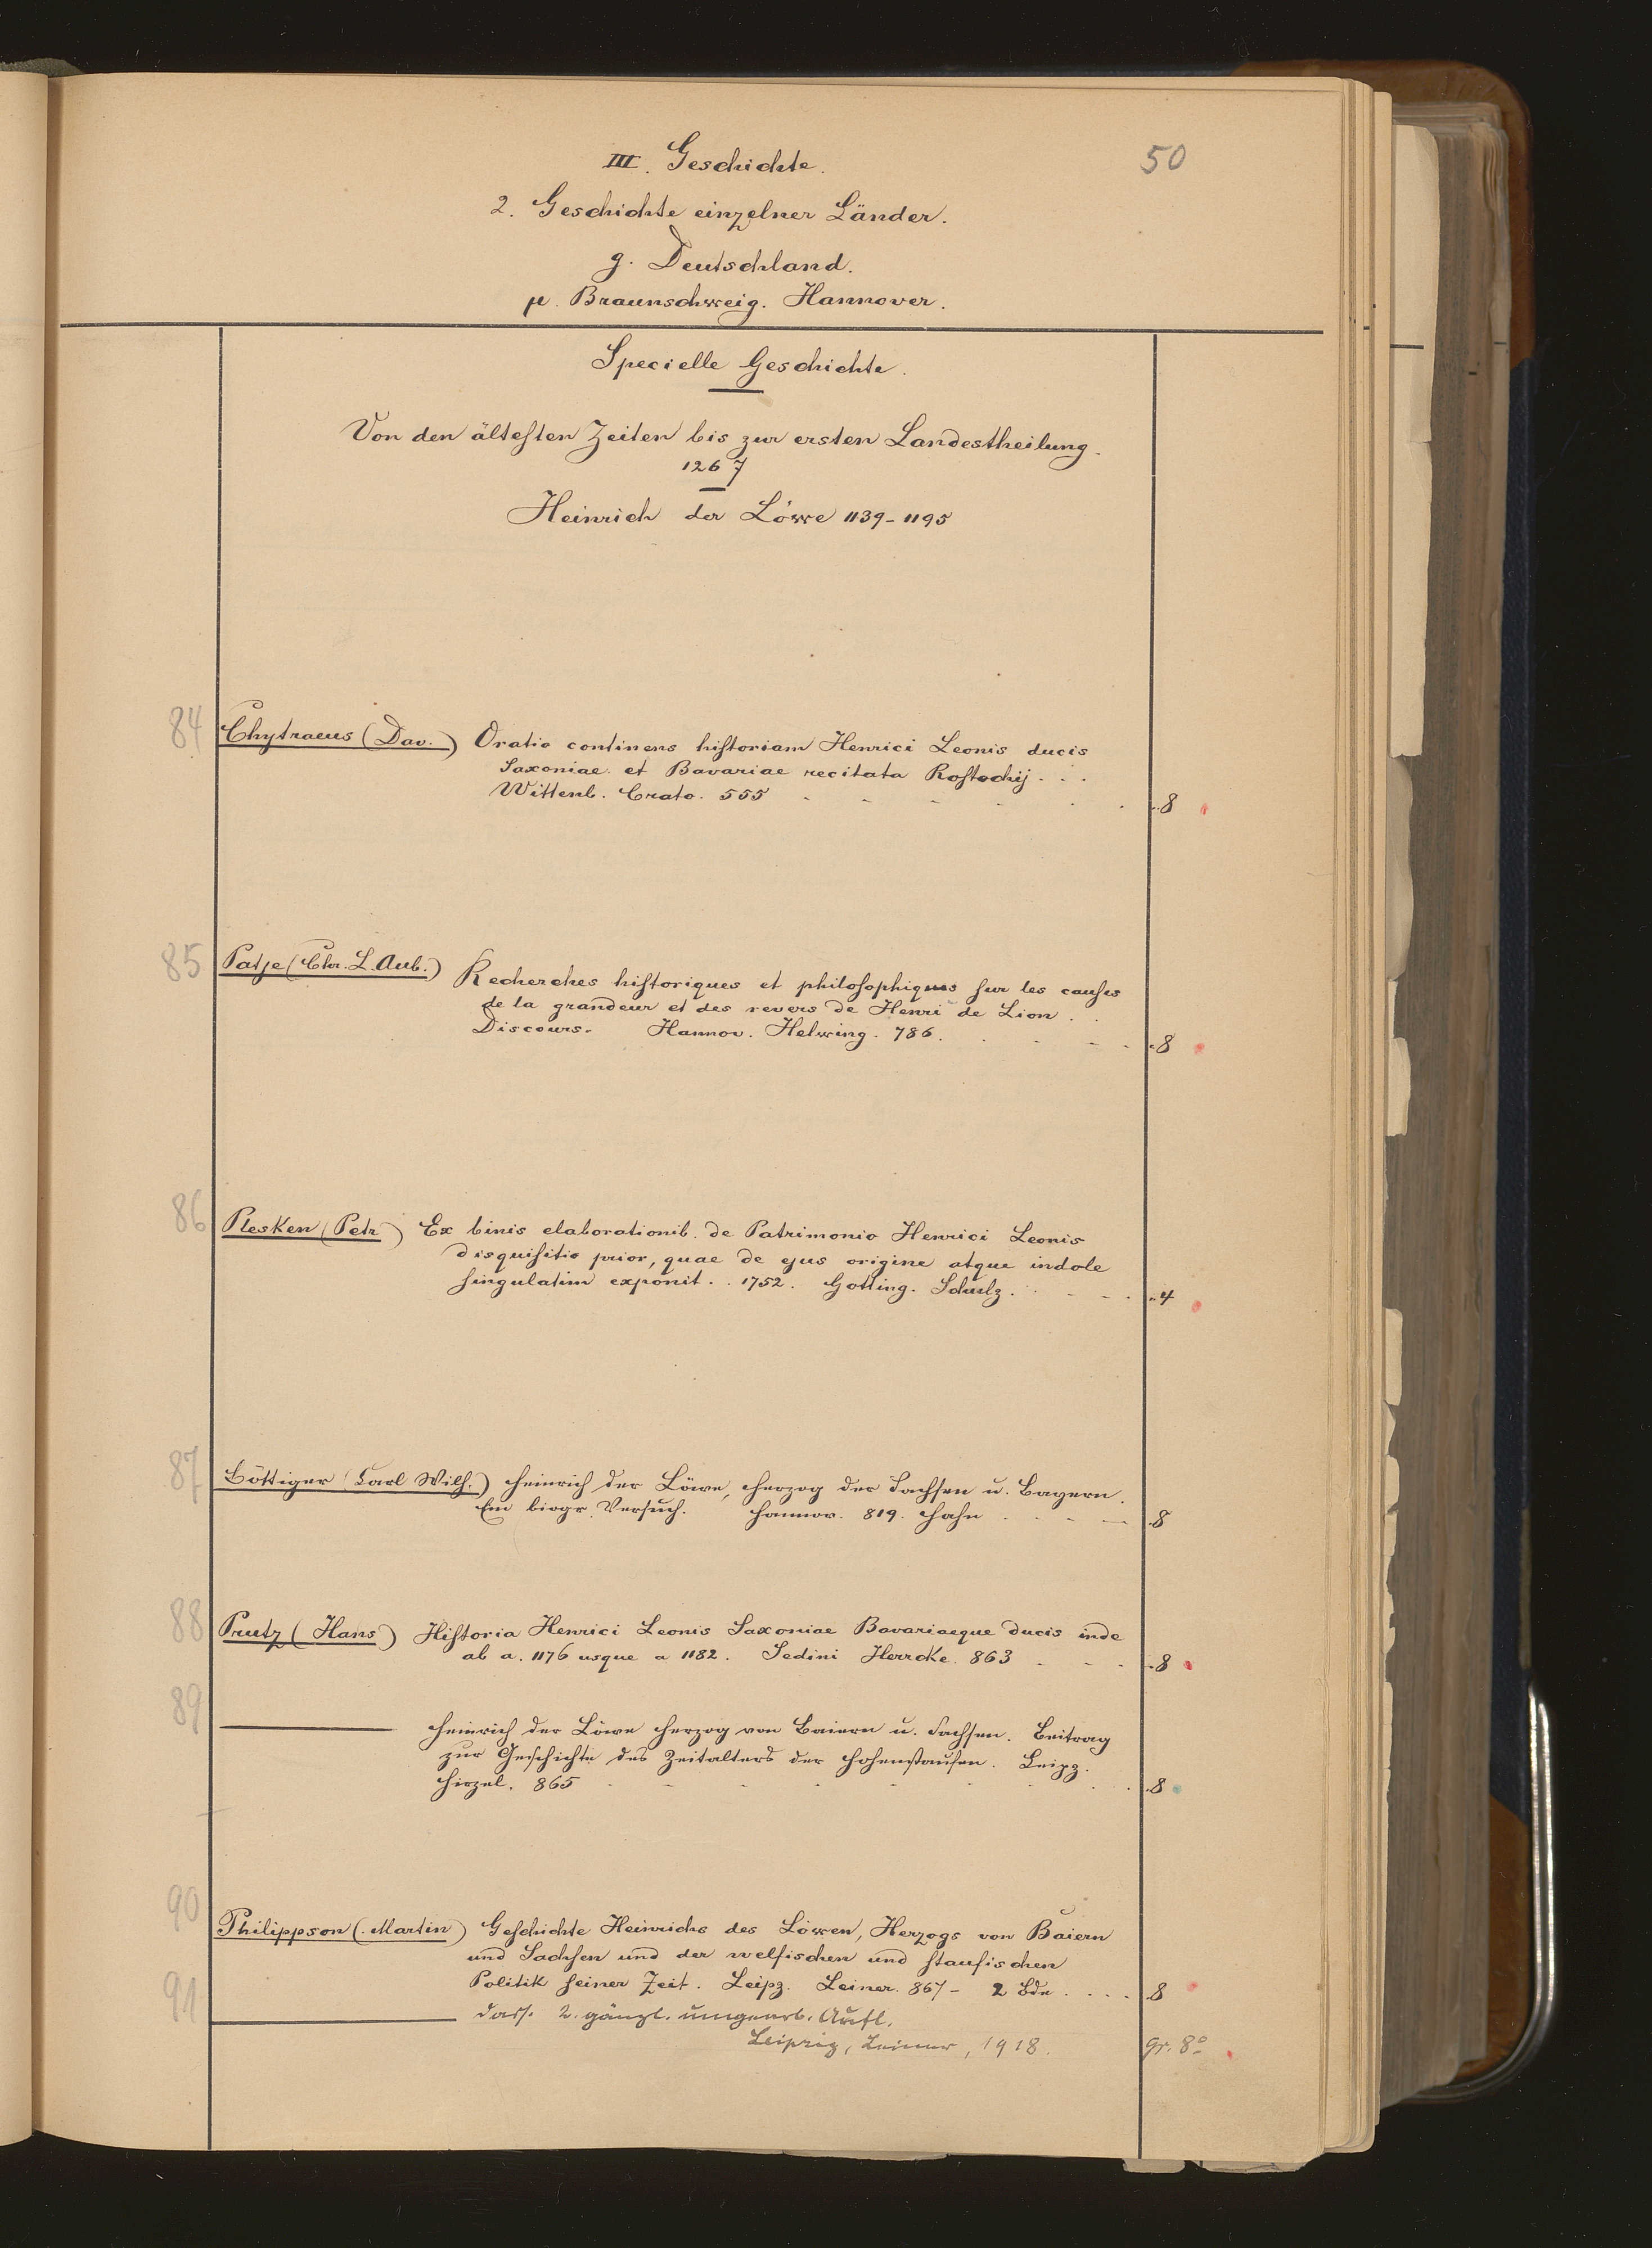 50
III. Geschichte.
2. Geschichte einzelner Länder.
g. Deutschland.
μ. Braunschweig. Hannover.
Specielle Geschichte.
Von den ältesten Zeiten bis zur ersten Landestheilung.
1267
Heinrich der Löwe 1139-1195
84 Chytraeus (Dav.) Oratio continens historiam Henrici Leonis ducis
Saxoniae et Bavariae recitata Rostochij . . .
Wittenb. Crato. 555 8
85 Patje (Chr. L. Aub.) Recherches historiques et philosophiques sur les causes
de la grandeur et des revers de Henri de Lion . .
Discours. Hannov. Helwing. 786. 8
86 Plesken (Petr) Ex binis elaborationib. de Patrimonio Henrici Leonis
disquisitio prior, quae de ejus origine atque indole
singulatim exponit. . 1752. Gotting. Schulz. 4
87 Böttiger (Carl Wilh.) Heinrich der Löwe, Herzog der Sachsen u. Bayern.
Ein biogr. Versuch. Hannov. 819. Hahn 8
88 Prutz (Hans) Historia Henrici Leonis Saxoniae Bavariaeque ducis inde
ab a. 1176 usque a 1182. Sedini Herrcke. 863 8
89 Heinrich der Löwe Herzog von Baiern u. Sachsen. Beitrag
zur Geschichte des Zeitalters der Hohenstaufen. Leipz.
Hirzel. 865 8
90 Philippson (Martin) Geschichte Heinrichs des Löwen, Herzogs von Baiern
und Sachsen und der welfischen und staufischen
Politik seiner Zeit. Leipz. Leiner. 867- 2 Bde . . . . 8
91 Dass. 2. gänzl. umgearb. Aufl.
Leipzig, Leiner, 1918. gr. 8°